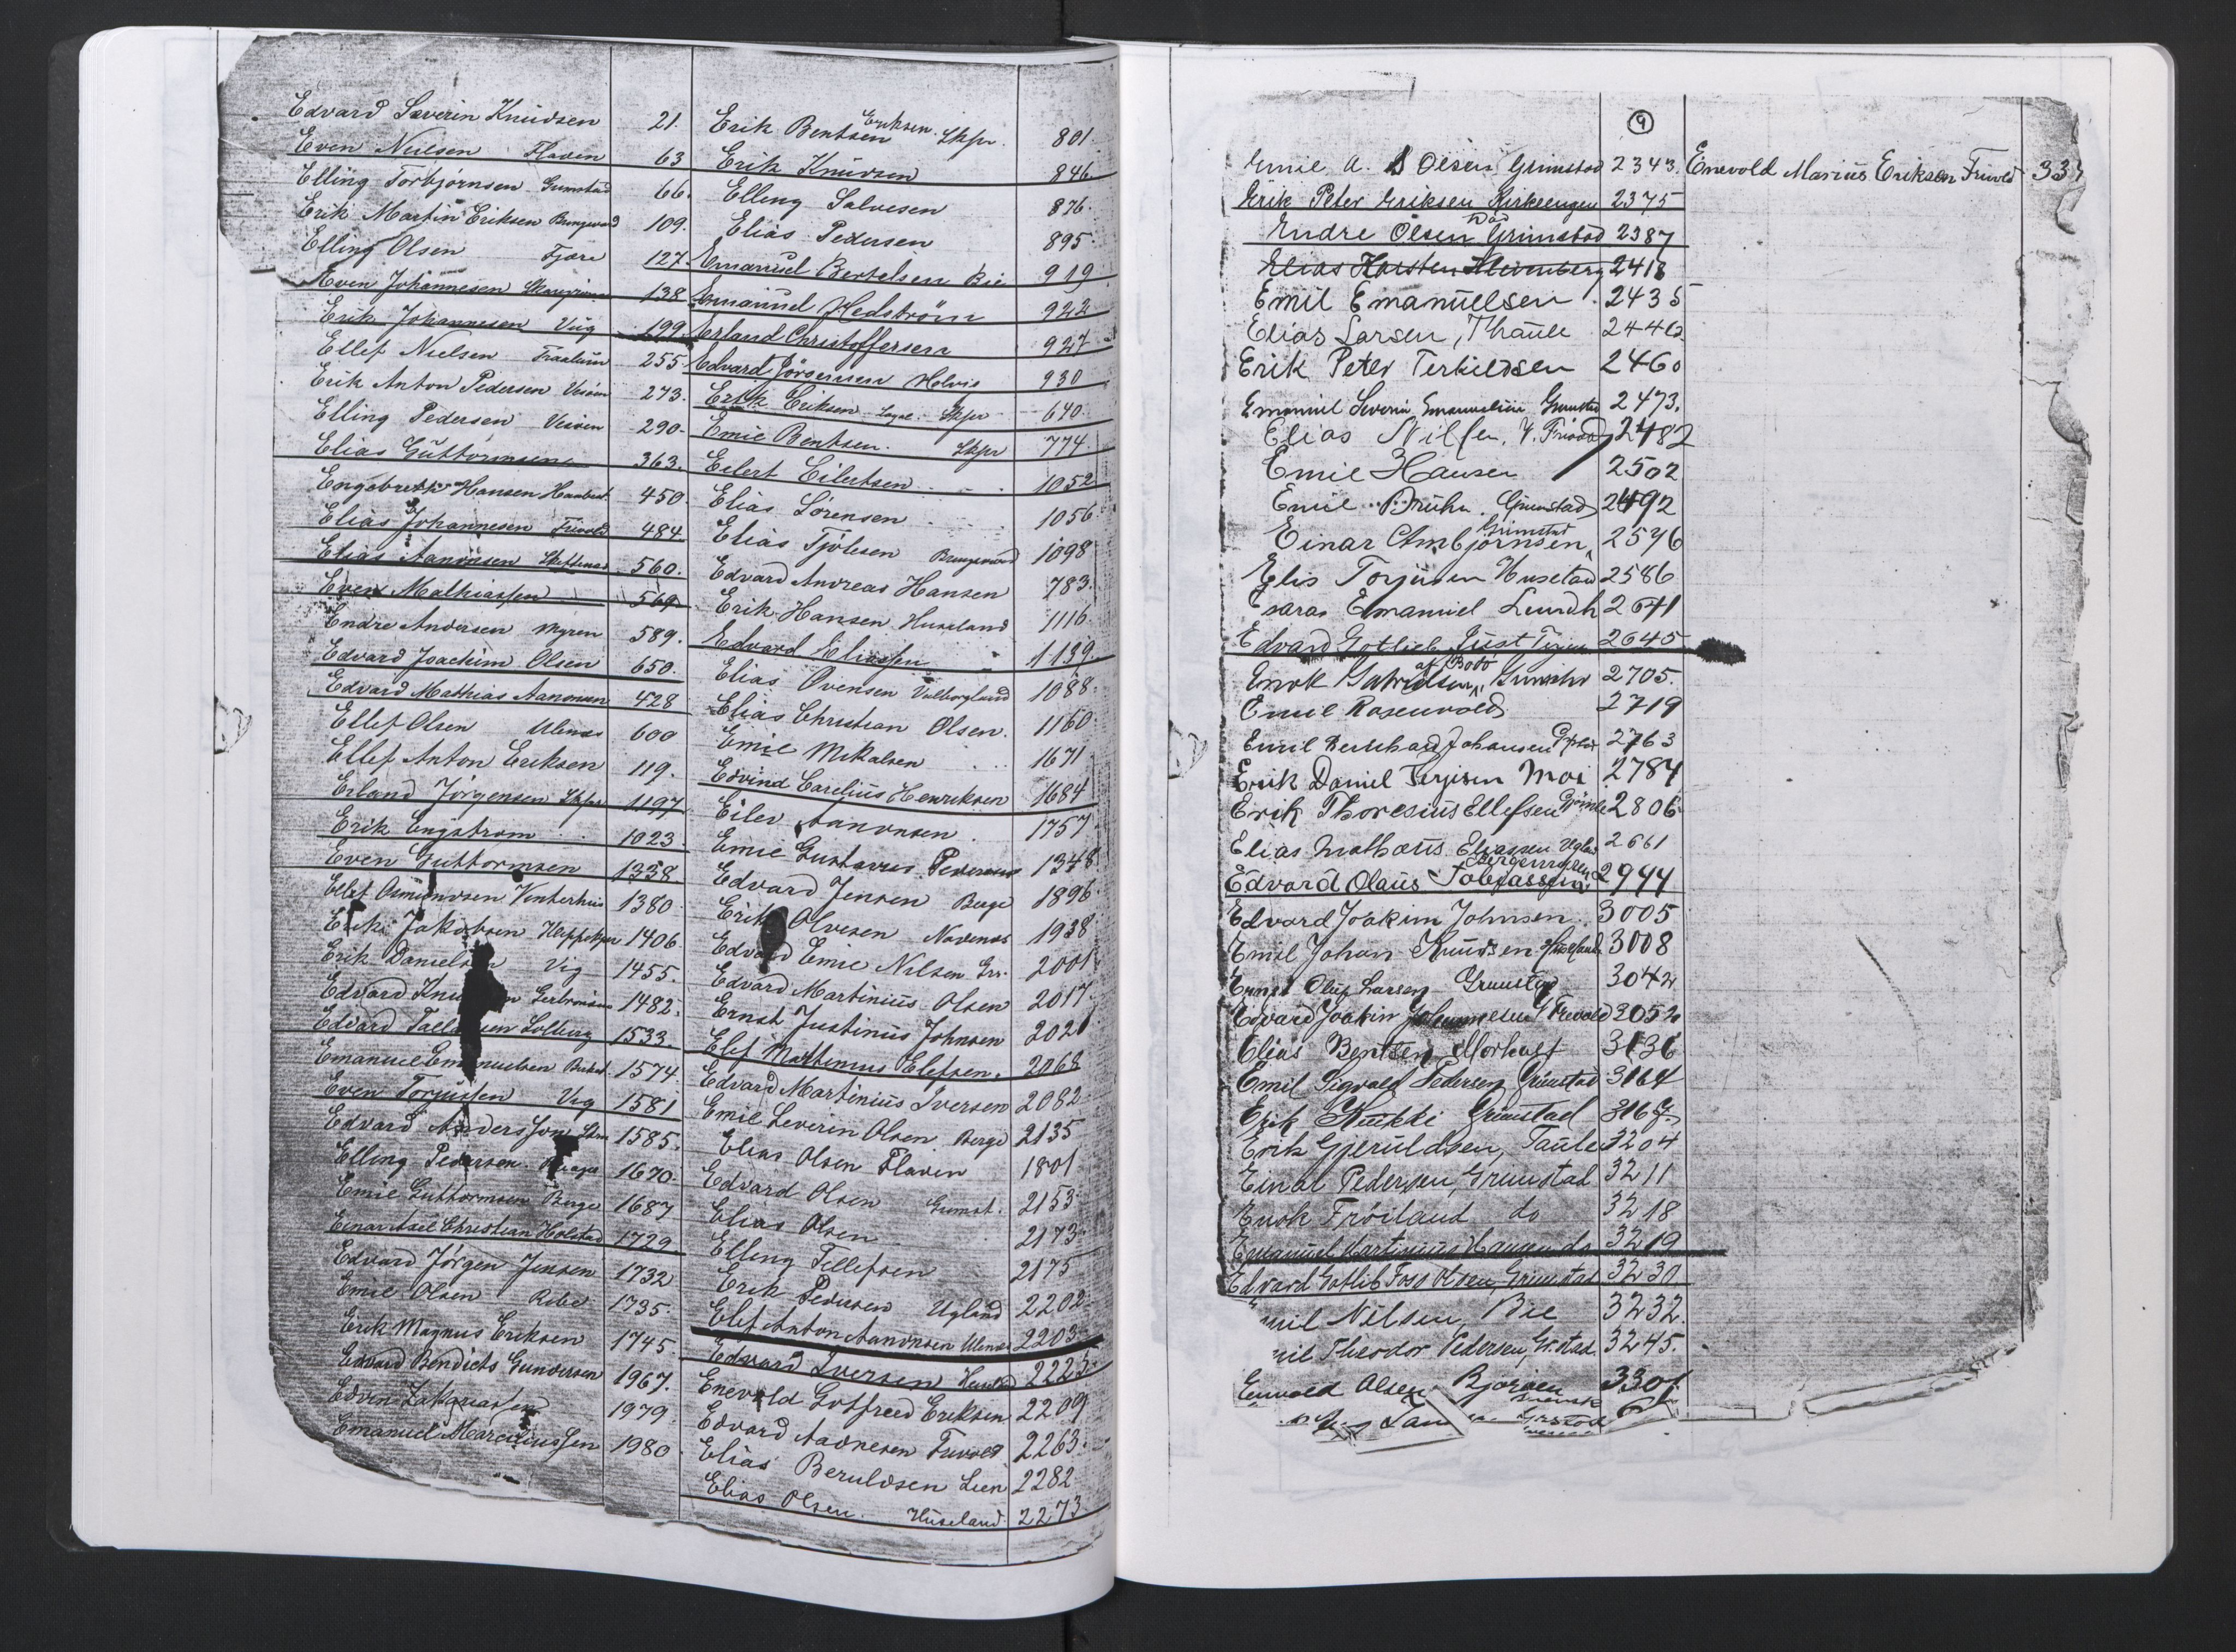 Edvard Severin Knudsen 21.
Even Nielsen Flaven 63
Elling Torbjørnsen Grimstad 66.
Erik Martin Eriksen Bringsværd 109.
Elling Olsen Fjære 127.
Even Johannesen 138
Erik Johannesen Viig 199
Ellef Nielsen 255
Erik Anton Pedersen Vesøen 273.
Elling Pedersen Veisøen 290
Elias Guttormsen 363.
Engebreth Hansen 450.
Elias Johannesen Frivold 484
Elias Aanonsen 560.
Even Mathiassen 569
Endre Andersen Myren 589.
Edvard Joachim Olsen 650.
Edvard Mathias Aanonsen 428
Ellef Olsen Ulenes 600
Ellef Anton Eriksen 119.
Erland Jørgensen Skpr 1197
Erik Engstrøm 1023
Even Guttormsen 1338.
Ellef Osmundsen Vinterhus 1380
Erik Jakobsen 1406.
Erik Danielsen Vig 1455.
Edvard 1482.
Edvard Solberg 1533.
Emanuel Emanuelsen 1574
Even Torjussen Vig 1581
Edvard Andersson 1585.
Elling Pedersen 1670.
Emil Guttormsen Berge 1687
Einar Axel Christian Holstad 1729
Edvard Jørgen Jensen 1732
Emil Olsen Ribe 1735.
Erik Magnus Eriksen 1745.
Edvard Bendicts Gundersen 1967.
Edvin Zakariassen 1979.
Emanuel Marcelius sen 1980
Eriksen.
Erik Bentsen Skpr. 801.
Erik Knudsen 846
Elling Salvesen 876.
Elias Pedersen 895.
Emanuel Bertelsen Bie 919
Emanuel Hedstrøm 922
Erland Christoffersen 927
Edvard Jørgensen Holvig 930
Erik Eriksen Skpr 640.
Emil Bentsen. Skpr 774.
Eilert Eilertsen 1052
Elias Sørensen 1056
Elias Tjølesen Bringsværd 1098
Edvard Andreas Hansen 783.
Erik Hansen Huseland 1116
Edvard Eliassen 1139
Elias Ovensen Valborgland 1088.
Elias Christian Olsen. 1160
Emil Mikalsen 1671
Edvind Carelius Henriksen 1684
Eilev Aanonsen 1757
Emil Gustavus Pedersen 1348
Edvard Jensen Berge 1896
Erik Olvesen Navenes 1938
Edvard Emil Nilsen Gr. 2001
Edvard Martinius Olsen 2017
Ernst Justinius Johnsen 2021
Elef Mathinus Elefsen. 2068
Edvard Martinius Iversen 2082
Emil Severin Olsen Berge 2135
Elias Olsen Flaven 1801
Edvard Olsen Grimst. 2153
Elias Olsen 2173
Elling Tellefsen 2175
Erik Pedersen Ugland 2202
Elef Anton Aanonsen Ulenes 2203
Edvard Iversen 2225
Enevold Gotfred Eriksen 2209
Edvard Aadnesen Frivold 2263.
Elias Beruldsen Lien 2282
Elias Olsen. Huseland 2273
9
Emil A. Olsen Grimstad 2343.
Erik Peter Eriksen Kirkeengen 2375
Død
Endre Olsen Grimstad 2387
Elias Karsten 2418
Emil Emanuelsen 2435
Elias Larsen, Thaule 2442
Erik Peter Terkildsen 2460
Emanuel Severin Emanuelsen Grimstad 2473.
Elias Nilsen, Y. Frivold 2482
Emil Hansen 2502
Emil Bruhn. Grimstad 2492
Grimstad
Einar Ambjørnsen 2576
Elis Torjusen Husetad 2586
Esaias Emanuel Lundh 2641
Edvard Gotlieb Just 2645
af Bodö
Enok 2705.
Emil Rosenvold 2719
Emil Bernhard Johansen 2763
Erik Daniel Terjesen Moi 2784
Erik Thoresius Ellefsen 2806
Elias Mathæus Eliassen Uglan 2661
Edvard Olaus Tobiassen 2944
Edvard Joakim Johnsen 3005
Emil Johan Knudsen Huseland 3008
Ernst Oluf Larsen Grimstad 3042
Edvard Joakin Johannesen Y Frivold 3052
Elias Bentsen Morholt 3136
Emil Sigvald Pedersen Grimstad 3164
Erik Grimstad 3167
Erik Gjeruldsen, Taule 3204
Einar Pedersen, Grimstad 3211
Enok Frøiland do 3218
Emanuel Martinius Hansen do 3219
Edvard Gotlib Foss Olsen, Grimstad 3230
Nilsen, Bie 3232.
Theodor Pedersen, Gr.stad 3245.
Enevold Olsen Bjorøen 3301
Enevold Marius Eriksen Frivold